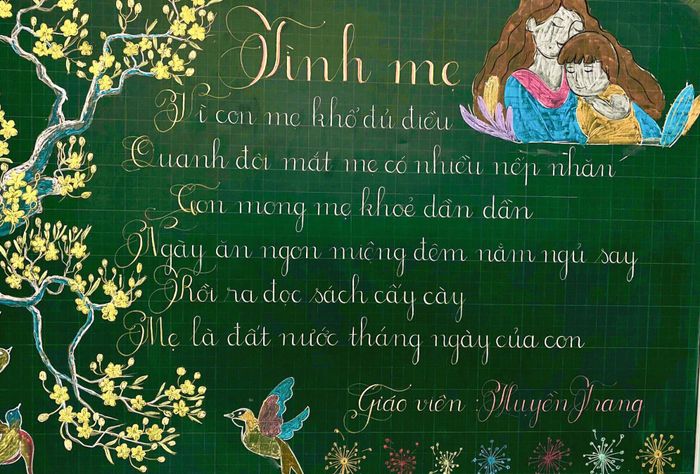 Tình mẹ
Vì con mẹ khổ đủ điều
Quanh đôi mắt mẹ có nhiều nếp nhăn
Con mong mẹ khoẻ dần dần
Ngày ăn ngon miệng đêm nằm ngủ say
Rồi ra đọc sách cấy cày
Mẹ là đất nước tháng ngày của con
Giáo viên : Huyền Trang